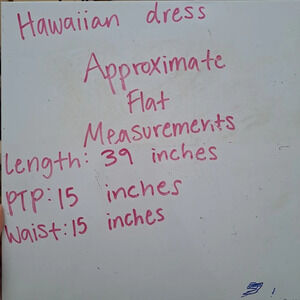 Hawaiian dress
Approximate
Flat
Measurements
Length: 39 inches
PTP: 15 inches
Waist: 15 inches